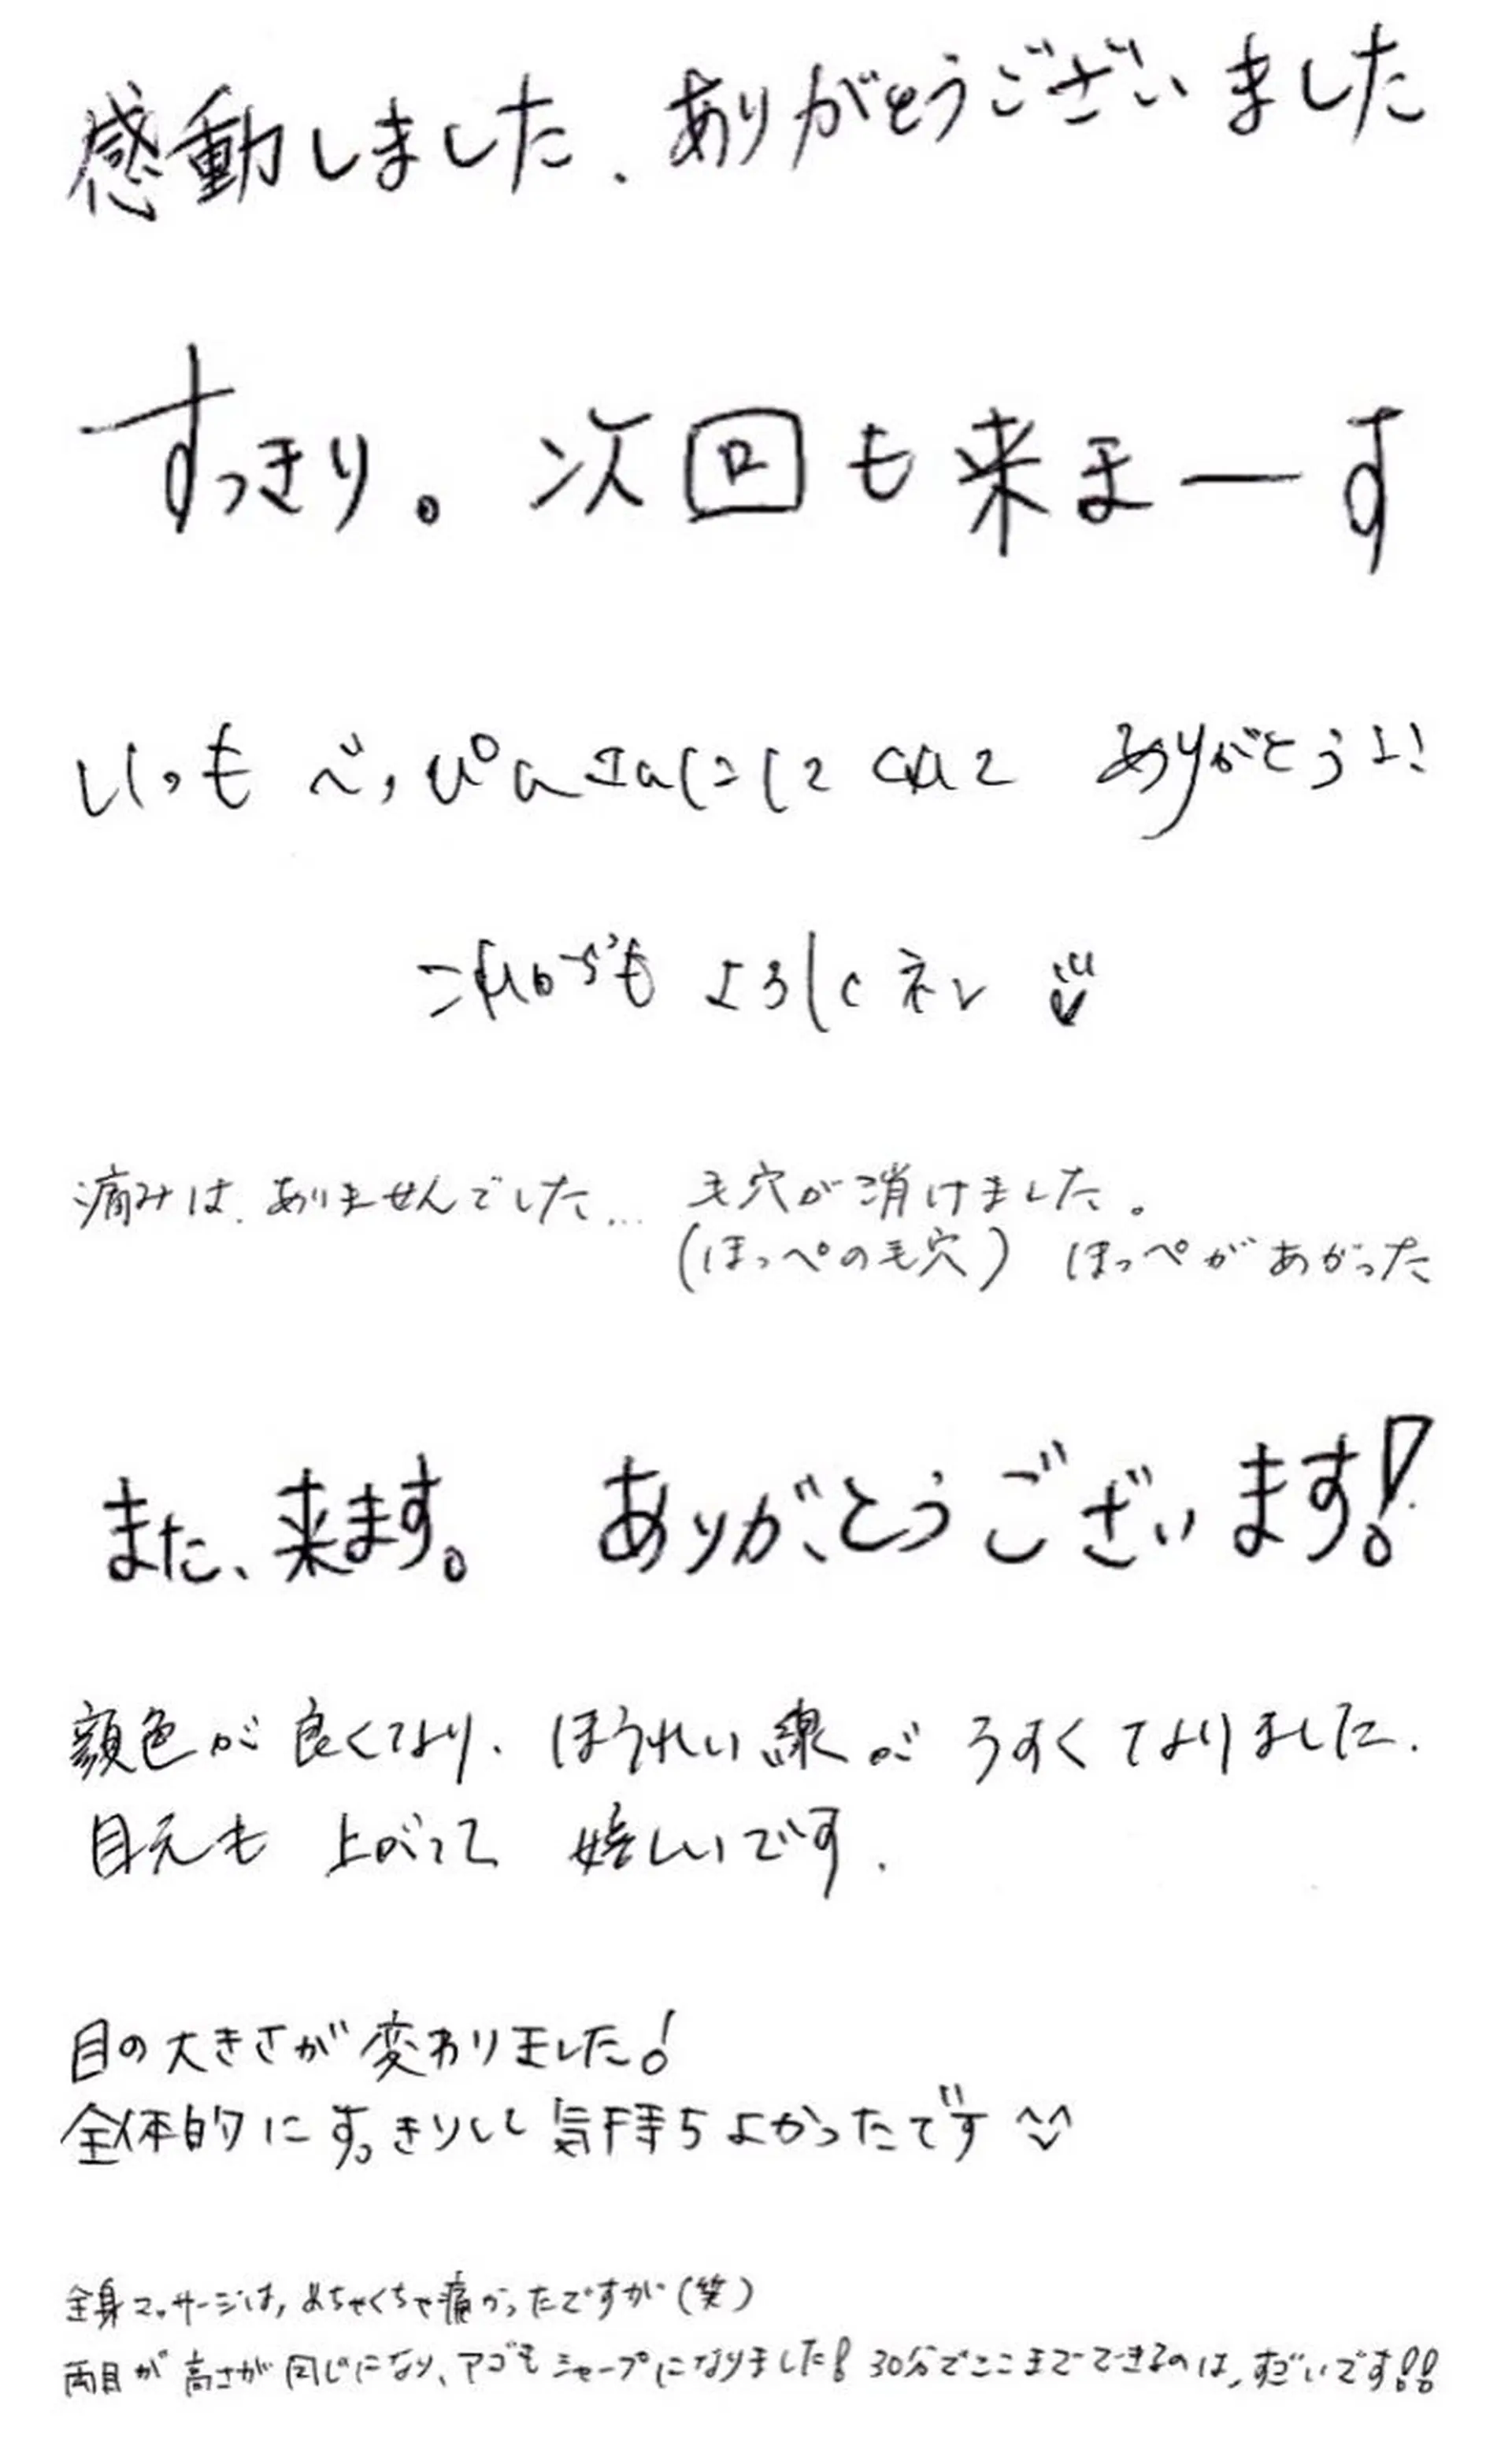 感動しました。ありがとうございました
すっきり。次回も来まーす
いつも べっぴんさんにしてくれて ありがとうよ!
これからも よろしくネ
痛みは、ありませんでした… 毛穴が消けました。
(ほっぺの毛穴) ほっぺがあがった
また、来ます。 ありがとうございます!
顔色が良くなり、ほうれい線がうすくなりました.
目元も 上がって 嬉しいです.
目の大きさが変わりました!
全体的にすっきりして気持ちよかったです ^^
全身マッサージは, めちゃくちゃ痛かったですが(笑)
両目が高さが同じになり、アゴもシャープになりました! 30分でここまでできるのは, すごいです!!